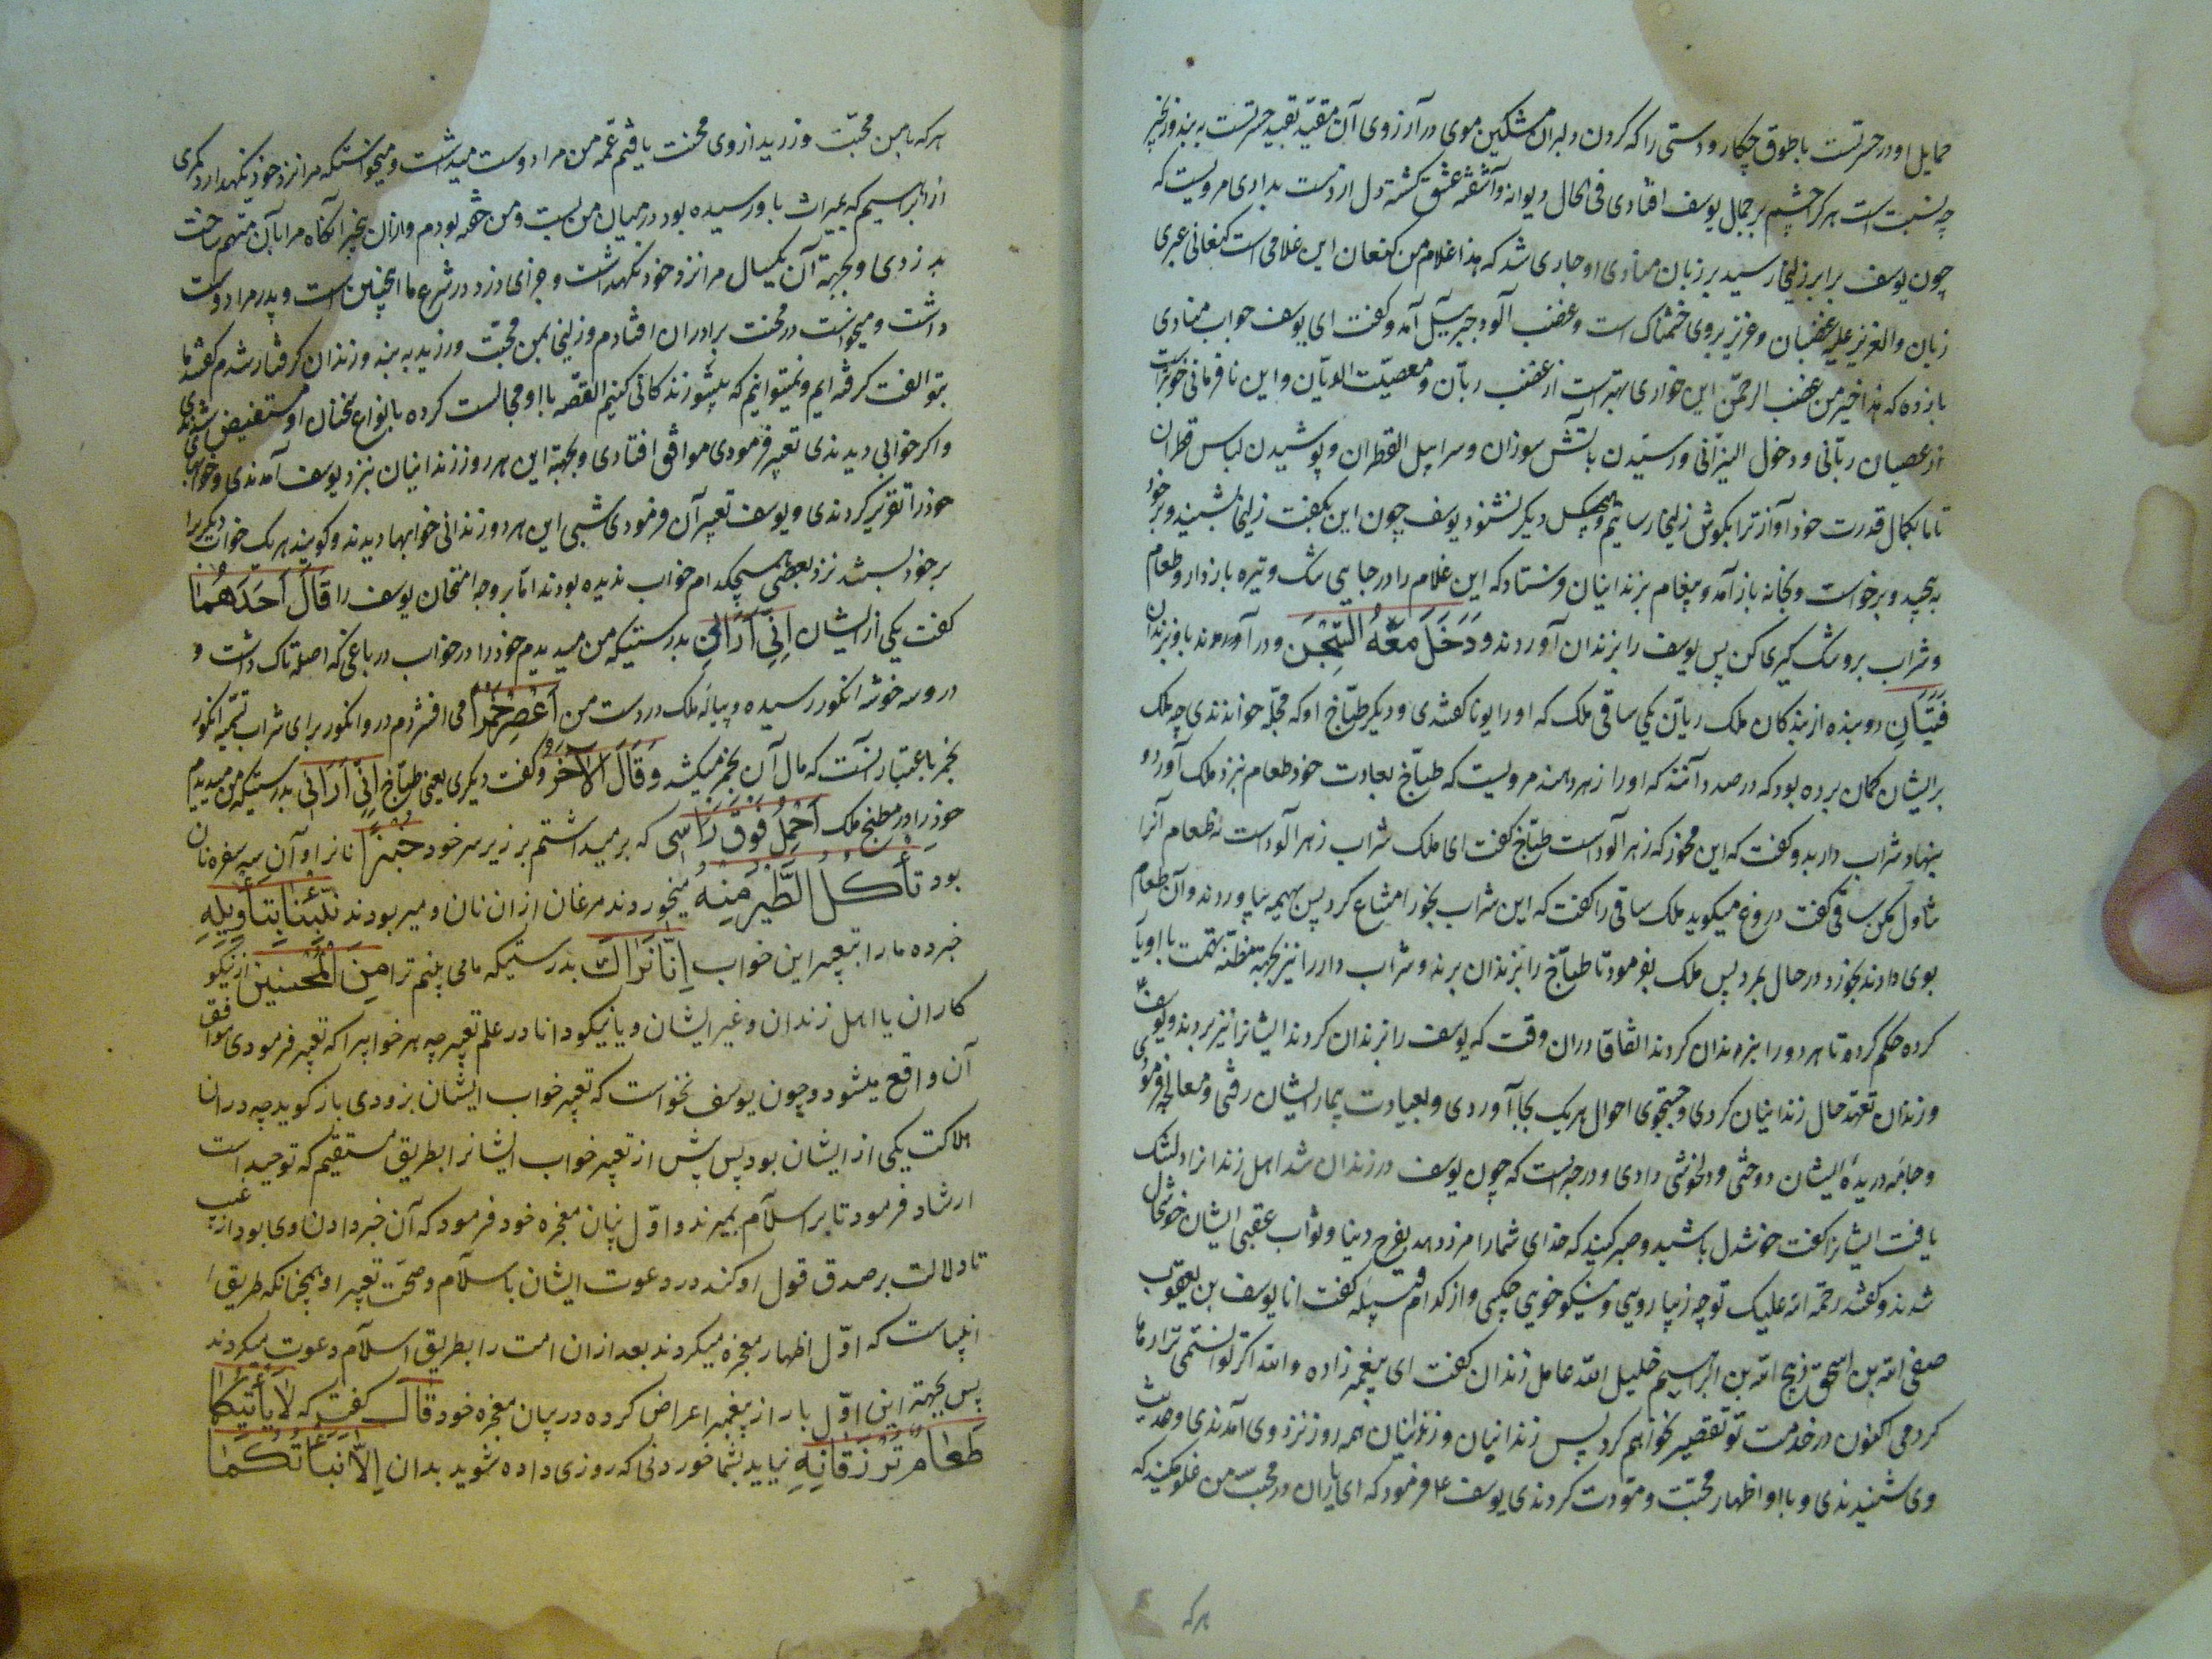 حمایل او در حسرتست با طوق چکار و دستی را که کردن دلبران مشکین موی در آرزوی آن مقید تقید حسرتست به بند و زنجیر
چه نسبت است هر کرا چشم بر جمال یوسف افتادی فی الحال دیوانه و آشفته عشق کشته دل از دست بدادی مرویست که
چون یوسف برابر زلیخا رسید بر زبان منادی او جاری شد که هذا غلام من کنعان این غلامی است کنعانی عبری
زبان والعزیز علیه غضبان و عزیز بر وی خشمناک است و غضب آلود جبرئیل آمد و کفت ای یوسف جواب منادی
باز ده که هذا خیر من غضب الرحمن این خواری بهتر است از غضب ربانی و معصیت الدیان و این نافرمانی خوبتر است
از عصیان ربانی و دخول النیرانی و رسیدن بآتش سوزان و سرابیل القطران و پوشیدن لباس قطران
تا ما بکمال قدرت خود آواز ترا بکوش زلیخا رسانیم و هیچکس دیکر نشنود یوسف چون این بکفت زلیخا بشنید و بر خود
به پیچید و برخواست و بخانه باز آمد و پیغام بزندانیان فرستاد که این غلام را در جایی تنک و تیره بازدار و طعام
و شراب برو تنک کیری کن پس یوسف را بزندان آوردند وَدَخَلَ مَعَهُ السِّجْنَ و در آمدند با او بزندان
فَتَیَانِ دو بنده از بندکان ملک ریان یکی ساقی ملک که او را یونا کفتندی و دیکر طباخ او که مجله خواندندی چه ملک
بر ایشان کمان برده بود که در صدد آنند که او را زهر دهند مرویست که طباخ بعادت خود طعام نزد ملک آورد و
بنهاد شراب دار بدو کفت که این مخور که زهر آلود است طباخ کفت ای ملک شراب زهر آلود است نه طعام آنرا
تناول مکن ساقی کفت دروغ میکوید ملک ساقی را کفت که این شراب بخور امتناع کرد پس بهیمه بیاوردند و آن طعام
بوی دادند بخورد در حال بمرد پس ملک بفرمود تا طباخ را بزندان برند و شراب دار را نیز بجهة مظنه تهمت با او یار
کرده حکم کرد تا هر دو را بزندان کردند اتفاقا در ان وقت که یوسف را بزندان کردند ایشانرا نیز بردند و یوسف ع
در زندان تعهد حال زندانیان کردی و جستجوی احوال هر یک بجا آوردی و بعیادت بیمار ایشان رفتی و معالجه فرمودی
و جامه دریده ایشان دوختی و دلخوشی دادی و در خبر است که چون یوسف در زندان شد اهل زندانرا دلتنک
یافت ایشانرا کفت خوشدل باشید و صبر کنید که خدای شما را مزد دهد بفرح دنیا و ثواب عقبی ایشان خوشحال
شدند و کفتند رحمة الله علیک تو چه زیبا رویی و نیکو خویی چکسی و از کدام قبیله کفت انا یوسف بن یعقوب
صفی الله بن اسحق ذبیح الله بن ابراهیم خلیل الله عامل زندان کفت ای پیغمبر زاده والله اکر توانستمی ترا رها
کردمی اکنون در خدمت تو تقصیر نخواهم کرد پس زندانیان و زندانبان همه روز نزد وی آمدندی و حدیث
وی شنیدندی و با او اظهار محبت و مودت کردندی یوسف ع فرمود که ای یاران در محبت من غلو مکنید که
هر که
هر که با من محبت ورزید از وی محنت یافتم عمه من مرا دوست میداشت و میخواستکه مرا نزد خود نکهدارد کمری
از ابراهیم که بمیراث باو رسیده بود در میان من بست و من خفته بودم و از ان بیخبر آنکاه مرا بآن متهم ساخت
بدزدی و بجهة آن یکسال مرا نزد خود نکهداشت و جزای دزد در شرع ما اینچنین است و پدر مرا دوست
داشت و میخواست در محنت برادران افتادم و زلیخا بمن محبت ورزید به بند و زندان کرفتار شدم کفتند ما
بتو الفت کرفته ایم و نمیتوانیم که بیتو زندکانی کنیم القصه با او مجالست کرده بانواع سخنان او مستفیض شدندی
و اکر خوابی دیدندی تعبیر فرمودی موافق افتادی و بجهة این هر روز زندانیان نزد یوسف آمدندی و خوابهای
خود را تقریر کردندی و یوسف تعبیر آن فرمودی شبی این هر دو زندانی خوابها دیدند و کویند هر یک خواب دیکر را
بر خود بستند نزد بعضی هیچکدام خواب ندیده بودند اما بر وجه امتحان یوسف را قَالَ اَحَدُهُمَا
کفت یکی از ایشان اِنّی اَرَانِی بدرستیکه من میدیدم خود را در خواب در باغی که اصله تاک داشت و
در و سه خوشه انکور رسیده و پیاله ملک در دست من اَعْصِرُ خَمْرًا می افشردم در و انکور برای شراب تسمیه انکور
بخمر باعتبار آنست که مآل آن بخمر میکشد وَقَالَ الْآخَرُ و کفت دیکری یعنی طباخ اِنّی اَرَانِی بدرستیکه من میدیدم
خود را در مطبخ ملک اَحْمِلُ فَوْقَ رَأْسِی که بر میداشتم بر زبر سر خود خُبْزًا نانرا و آن سه سفره نان
بود تَأْکُلُ الطَّیْرُ مِنْهُ میخوردند مرغان از ان نان و میربودند نَبِّئْنَا بِتَأْوِیلِهِ
خبر ده ما را بتعبیر این خواب اِنَّا نَرَاکَ بدرستیکه ما می بینم ترا مِنَ الْمُحْسِنِینَ از نیکو
کاران با اهل زندان و غیر ایشان و یا نیکو دانا در علم تعبیر چه هر خوابیرا که تعبیر فرمودی موافق
آن واقع میشود و چون یوسف نخواست که تعبیر خواب ایشان بزودی باز کوید چه در ان
هلاکت یکی از ایشان بود پس پیش از تعبیر خواب ایشانرا بطریق مستقیم که توحید است
ارشاد فرمود تا بر اسلام بمیرند و اول بیان معجزه خود فرمود که آن خبر دادن اوی بود از غیب
تا دلالت بر صدق قول او کند در دعوت ایشان باسلام و صحت تعبیر او همچنانکه طریق ا
انبیاست که اول اظهار معجزه میکردند بعد از ان امت را بطریق اسلام دعوت میکردند
پس بجهة این اول بار از تعبیر اعراض کرده در بیان معجزه خود قَالَ کفت که لَا یَأْتِیکُمَا
طَعَامٌ تُرْزَقَانِهِ نیاید بشما خوردنی که روزی داده شوید بدان اِلَّا نَبَّأْتُکُمَا